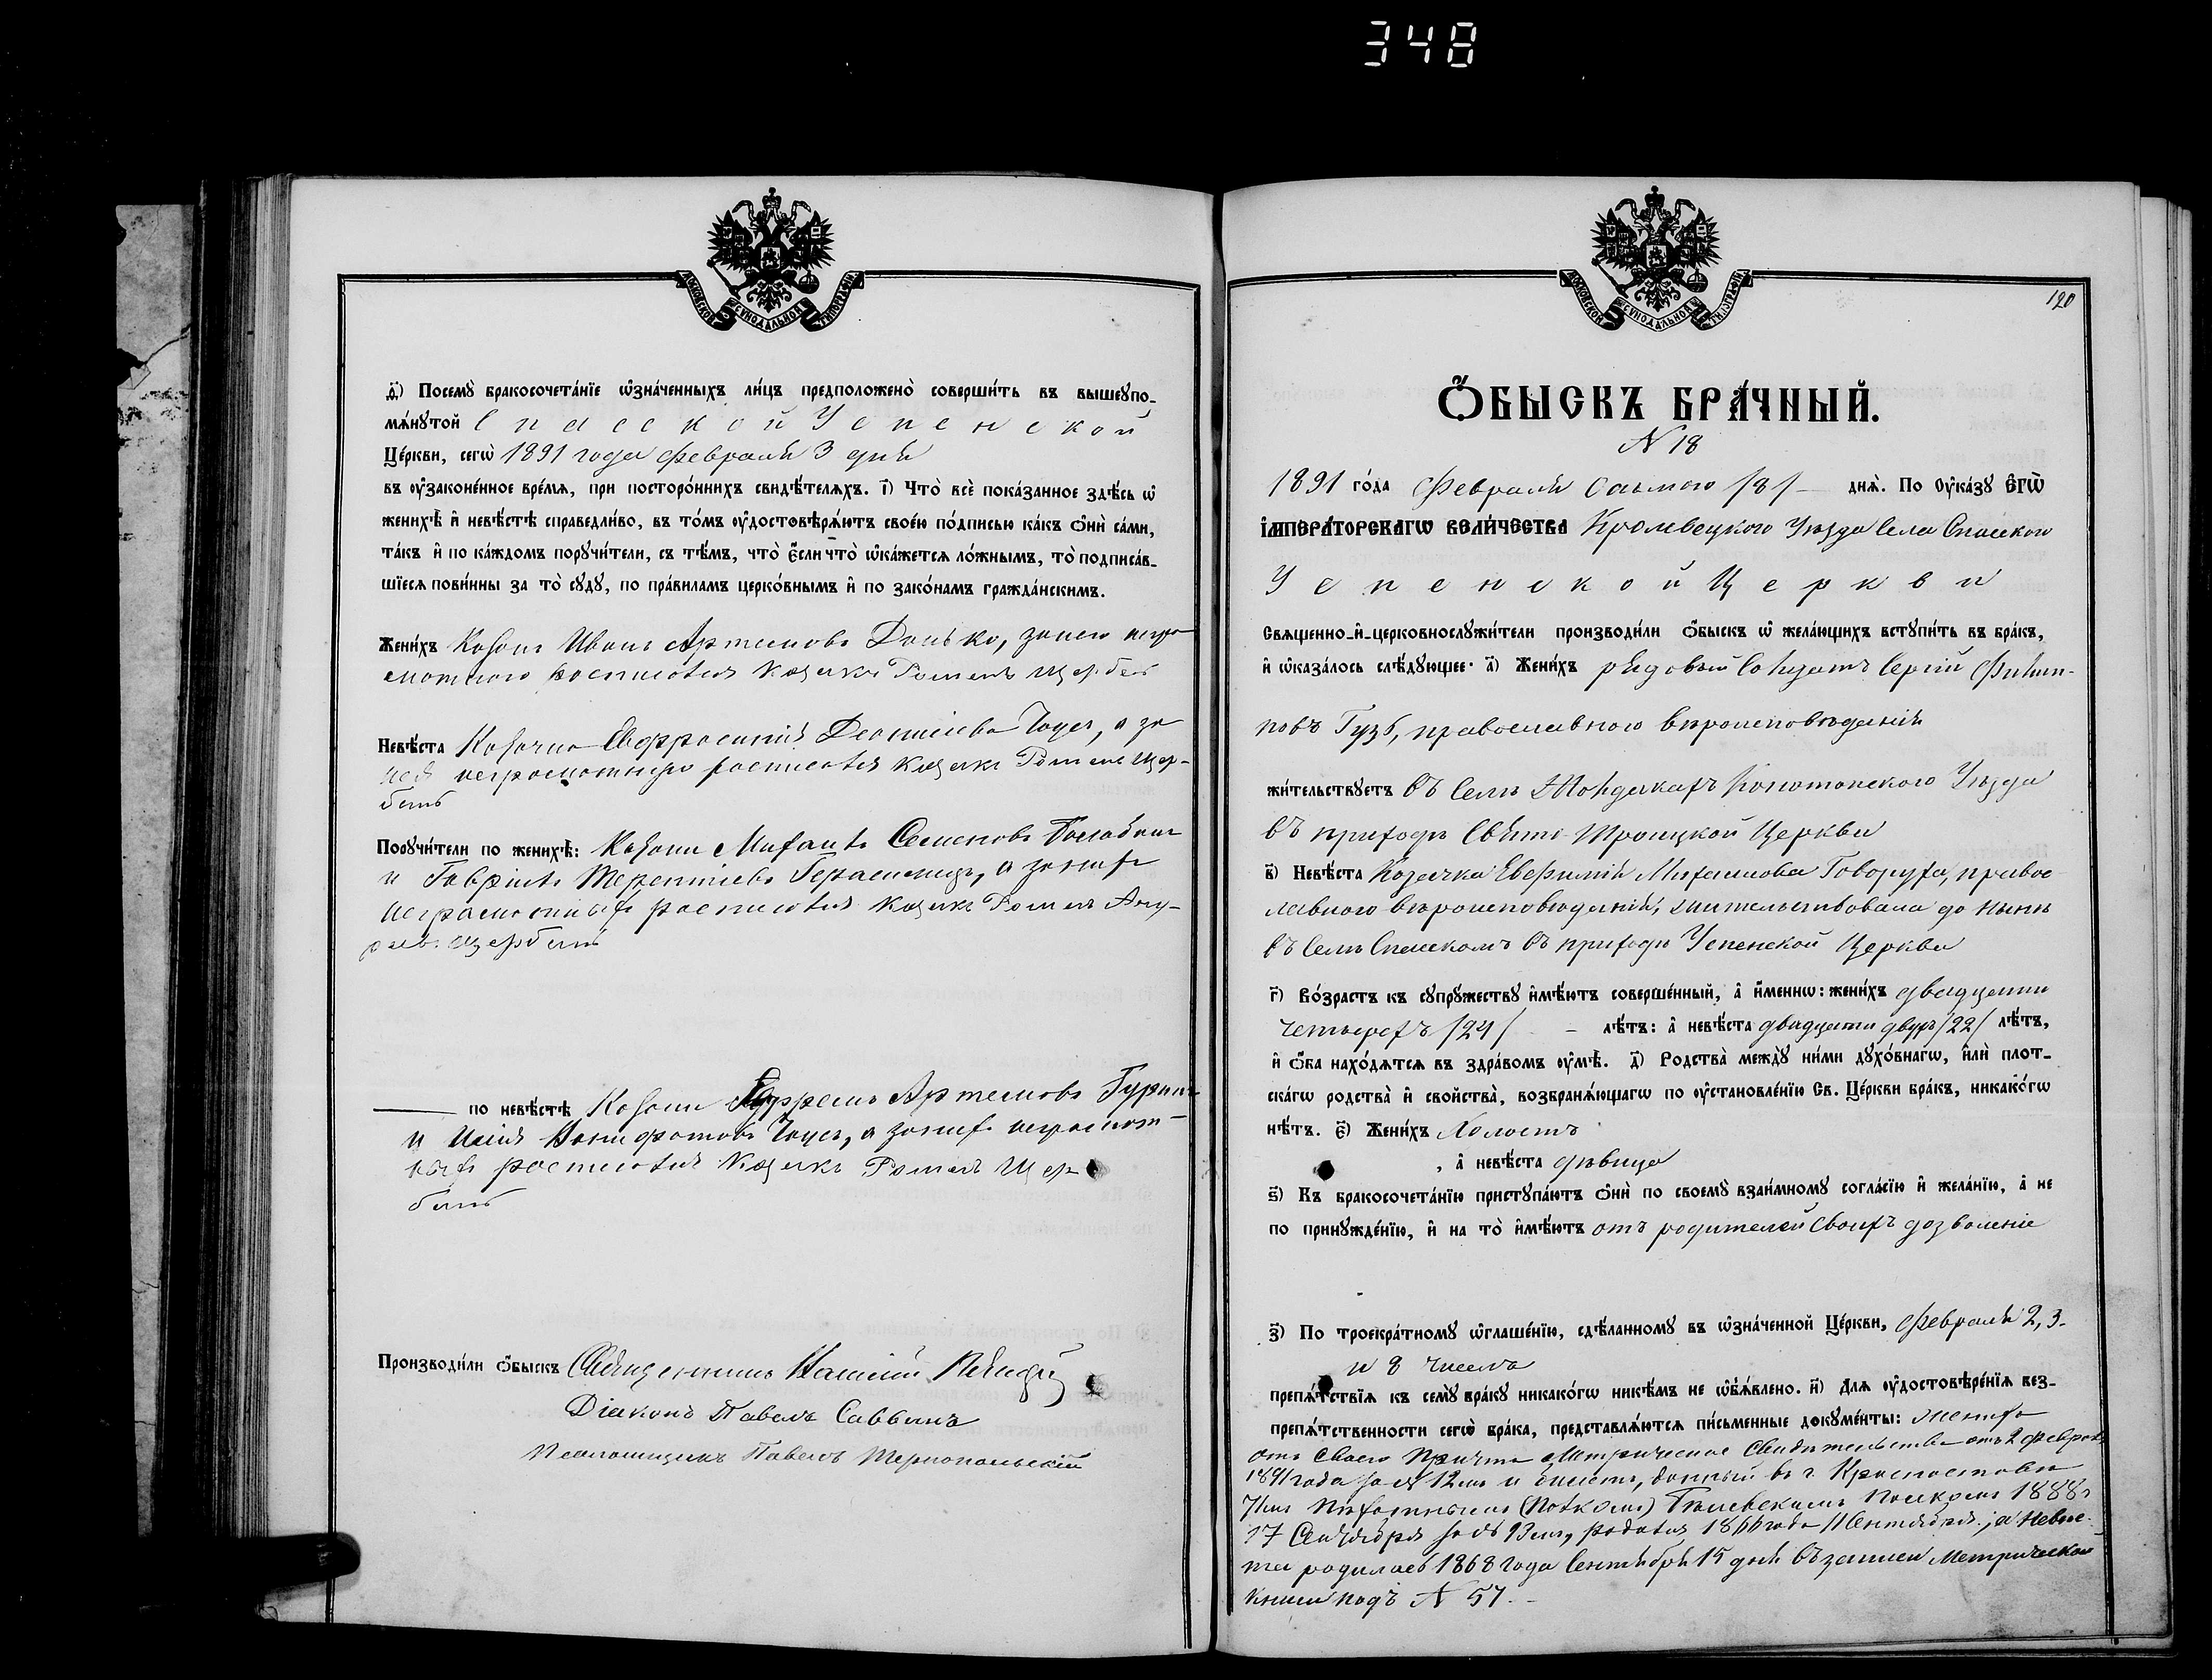 348
МОСКОВСКОЙ СѴНОДАЛЬНОЙ ТИПОГРАФІИ
ѳ҃) Посемꙋ̀ бракосочета́нїе ѡ҆зна́ченныхъ ли́цъ предположено̀ соверши́ть въ вышеꙋпо-
мѧ́нꙋтой Спасской Успенской
Це́ркви, сегѡ̀ 1891 года Февраля 3 дня
въ ᲂу҆зако́ненное вре́мѧ, при посторо́ннихъ свидѣ́телѧхъ. і҃) Что̀ всѐ пока́занное здѣ́сь ѡ҆
женихѣ̀ и҆ невѣ́стѣ справедли́во, въ то́мъ ᲂу҆достовѣрѧ́ютъ свое́ю по́дписью ка́къ ѻ҆нѝ са́ми,
та́къ и҆ по ка́ждомъ порꙋчи́тели, съ тѣ́мъ, что̀ є҆́сли что̀ ѡ҆ка́жетсѧ ло́жнымъ, то̀ подписа́в-
шїесѧ пови́нны за то̀ сꙋдꙋ̀, по пра́вилам церко́внымъ и҆ по зако́намъ гражда́нскимъ.
Жени́хъ Козакъ Иванъ Артемовъ Донько, за него негра
мотного росписался козакъ Романъ Щербань
Невѣ́ста Козачка Евфросинія Леонтіева Чоусъ, а за
нея неграмотную росписался козакъ Романъ Щер-
бань
Порꙋчи́тели по женихѣ̀: Козаки Михаилъ Семеновъ
и Гавріилъ Терентіевъ Герасименко, а за нихъ
неграмотныхъ росписался козакъ Романъ Анд-
реевъ Щербань
по невѣ́стѣ Козаки Ефремъ Артемовъ
и Илія Чоусъ, а за нихъ неграмот-
ныхъ росписался козакъ Романъ Щер
бань
Производи́ли ѻ҆́быскъ Священникъ
Діаконъ Павелъ Саввинъ
Псаломщикъ Павелъ Тернопольскій
МОСКОВСКОЙ СѴНОДАЛЬНОЙ ТИПОГРАФІИ
120
Ѻ҆БЫСКЪ БРА́ЧНЫЙ.
N 18
1891 го́да Февраля Осьмого /8/ днѧ̀. По Оу҆ка́зꙋ Є҆ГѠ̀
І҆МПЕРА́ТОРСКАГѠ ВЕЛИ́ЧЕСТВА Кролевецкого Уѣзда Села Спасского
Успенской Церкви
Свѧщенно-и҆-церковнослꙋжи́тели производи́ли ѻ҆́быскъ ѡ҆ жела́ющихъ встꙋпи́ть въ бра́къ,
и҆ ѡ҆каза́лось слѣ́дꙋющее: а҃) Жени́хъ рядовый Солдатъ Сергій Филип-
повъ Гузь, православного вѣроисповѣданія
жи́тельствꙋетъ въ Селѣ Конотопского Уѣзда
въ приходѣ Свято-Троицкой Церкви
в҃) Невѣ́ста Козачка Евфимія Михаилова Говоруха, правос
лавного вѣроисповѣданія, жительствовала до нынѣ
въ Селѣ Спасскомъ въ приходѣ Успенской Церкви
г҃) Во́зрастъ къ сꙋпрꙋ́жествꙋ и҆мѣ́ютъ соверше́нный, а҆ и҆́меннѡ: жени́хъ двадцати
четырехъ /24/ — лѣ́тъ: а҆ невѣ́ста двадцати двухъ /22/ лѣ́тъ,
и҆ ѻ҆́ба нахо́дѧтсѧ въ здра́вомъ ᲂу҆мѣ̀. д҃) Родства̀ междꙋ̀ ни́ми дꙋхо́внагѡ, и҆лѝ плот-
ска́гѡ родства̀ и҆ свойства̀, возбранѧ́ющагѡ по ᲂу҆становле́нїю Св. Це́ркви бра́къ, никако́гѡ
нѣ́тъ. є҃) Жени́хъ Холостъ
, а҆ невѣ́ста дѣвица
ѕ҃) Къ бракосочета́нїю пристꙋпа́ютъ ѻ҆нѝ по своемꙋ̀ взаи́мномꙋ согла́сїю и҆ жела́нїю, а҆ не
по принꙋжде́нїю, и҆ на то̀ и҆мѣ́ютъ отъ родителей своихъ дозволеніе
з҃) По троекра́тномꙋ ѡ҆глаше́нїю, сдѣ́ланномꙋ въ ѡ҆зна́ченной Це́ркви, Февраля 2, 3.
и 8 числа
препѧ́тствїѧ къ семꙋ̀ бра́кꙋ никако́гѡ никѣ́мъ не ѡ҆б̾ѧ́влено. и҃) Длѧ ᲂу҆достовѣре́нїѧ без-
препѧ́тственности сегѡ̀ бра́ка, представлѧ́ютсѧ пи́сьменные докꙋме́нты: жениха
отъ своего причта Метрическое Свидѣтельство отъ 2 Февраля
1891 года за N 12мъ и билетъ, данный въ г. Красноставѣ
71мъ Пѣхотнымъ (Полкомъ) Бѣлевскимъ Полкомъ 1888 г
17 Сентября за N 93мъ, родился 1866 года 11 Сентября; а невѣс-
та родилась 1868 года Сентября 15 дня въ записи Метрической
книги подъ N 57.